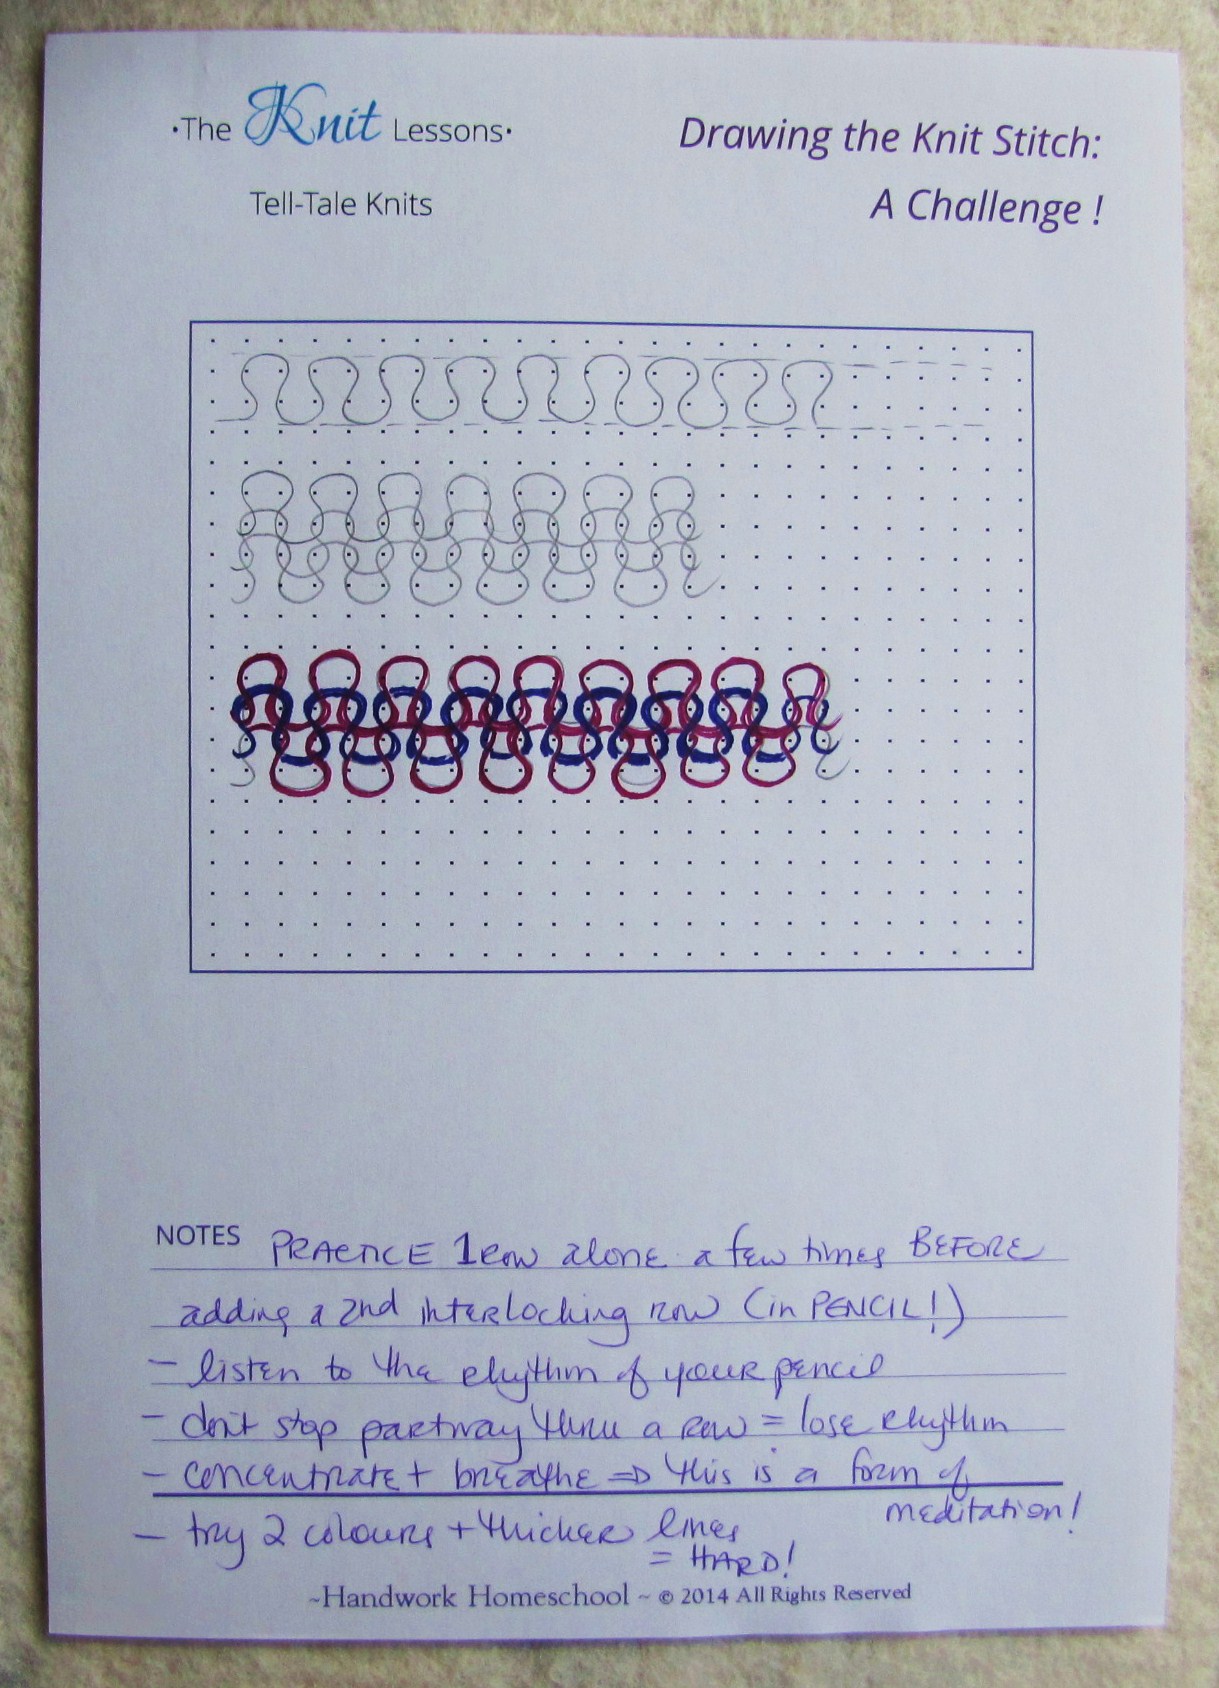 ·The Knit Lessons·
Tell-Tale Knits
Drawing the Knit Stitch:
A Challenge !
NOTES PRACTICE 1 row alone a few times BEFORE
adding a 2nd interlocking row (in PENCIL!)
- listen to the rhythm of your pencil
- don't stop partway thru a row = lose rhythm
- concentrate + breathe ⇒ this is a form of
meditation!
- try 2 colours + thicker lines
= HARD!
~Handwork Homeschool ~ © 2014 All Rights Reserved